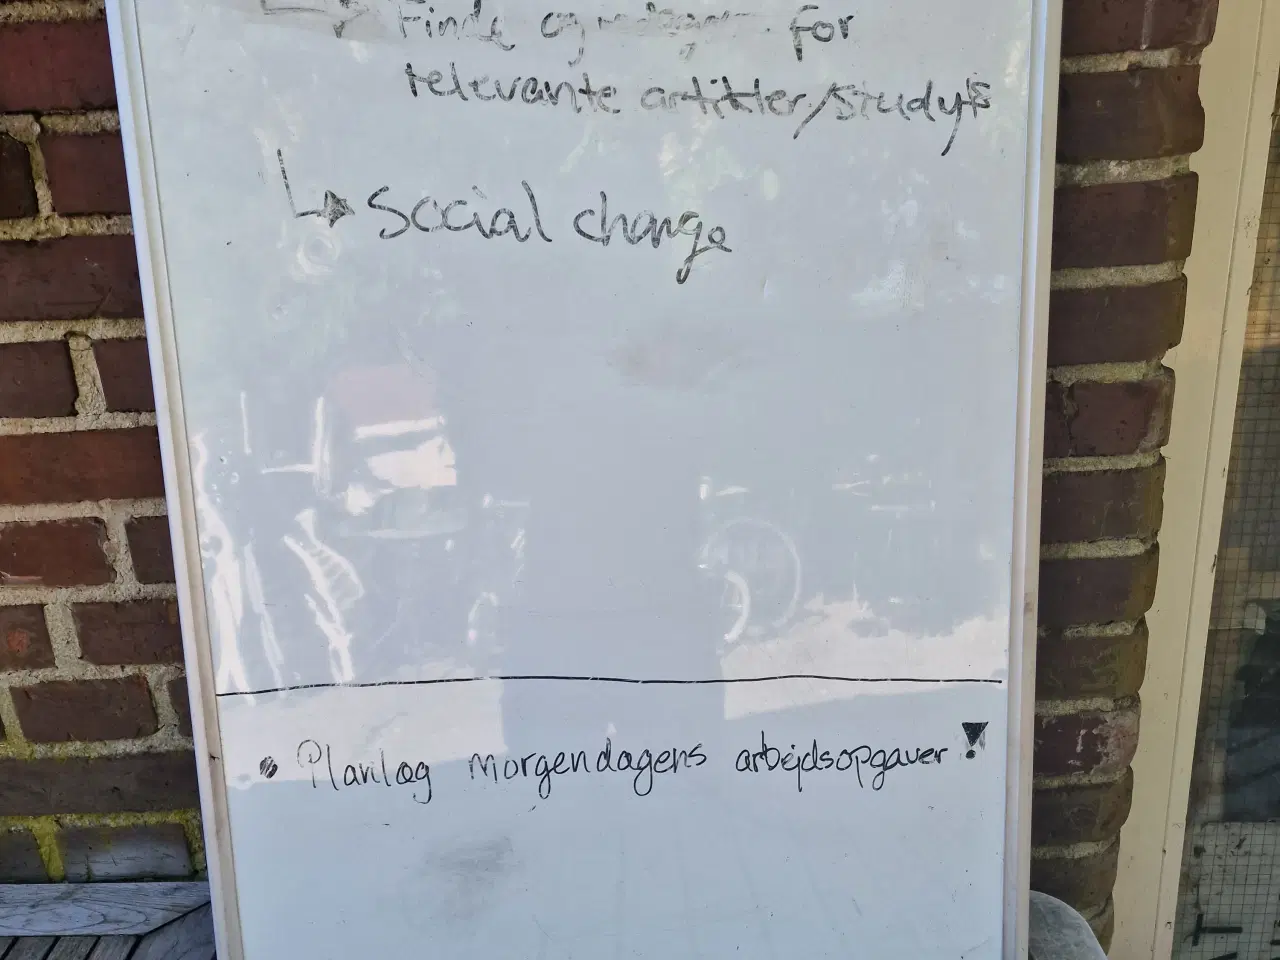 Finde og for
relevante artikler/study's
Social change
Planlæg morgendagens arbejdsopgaver!